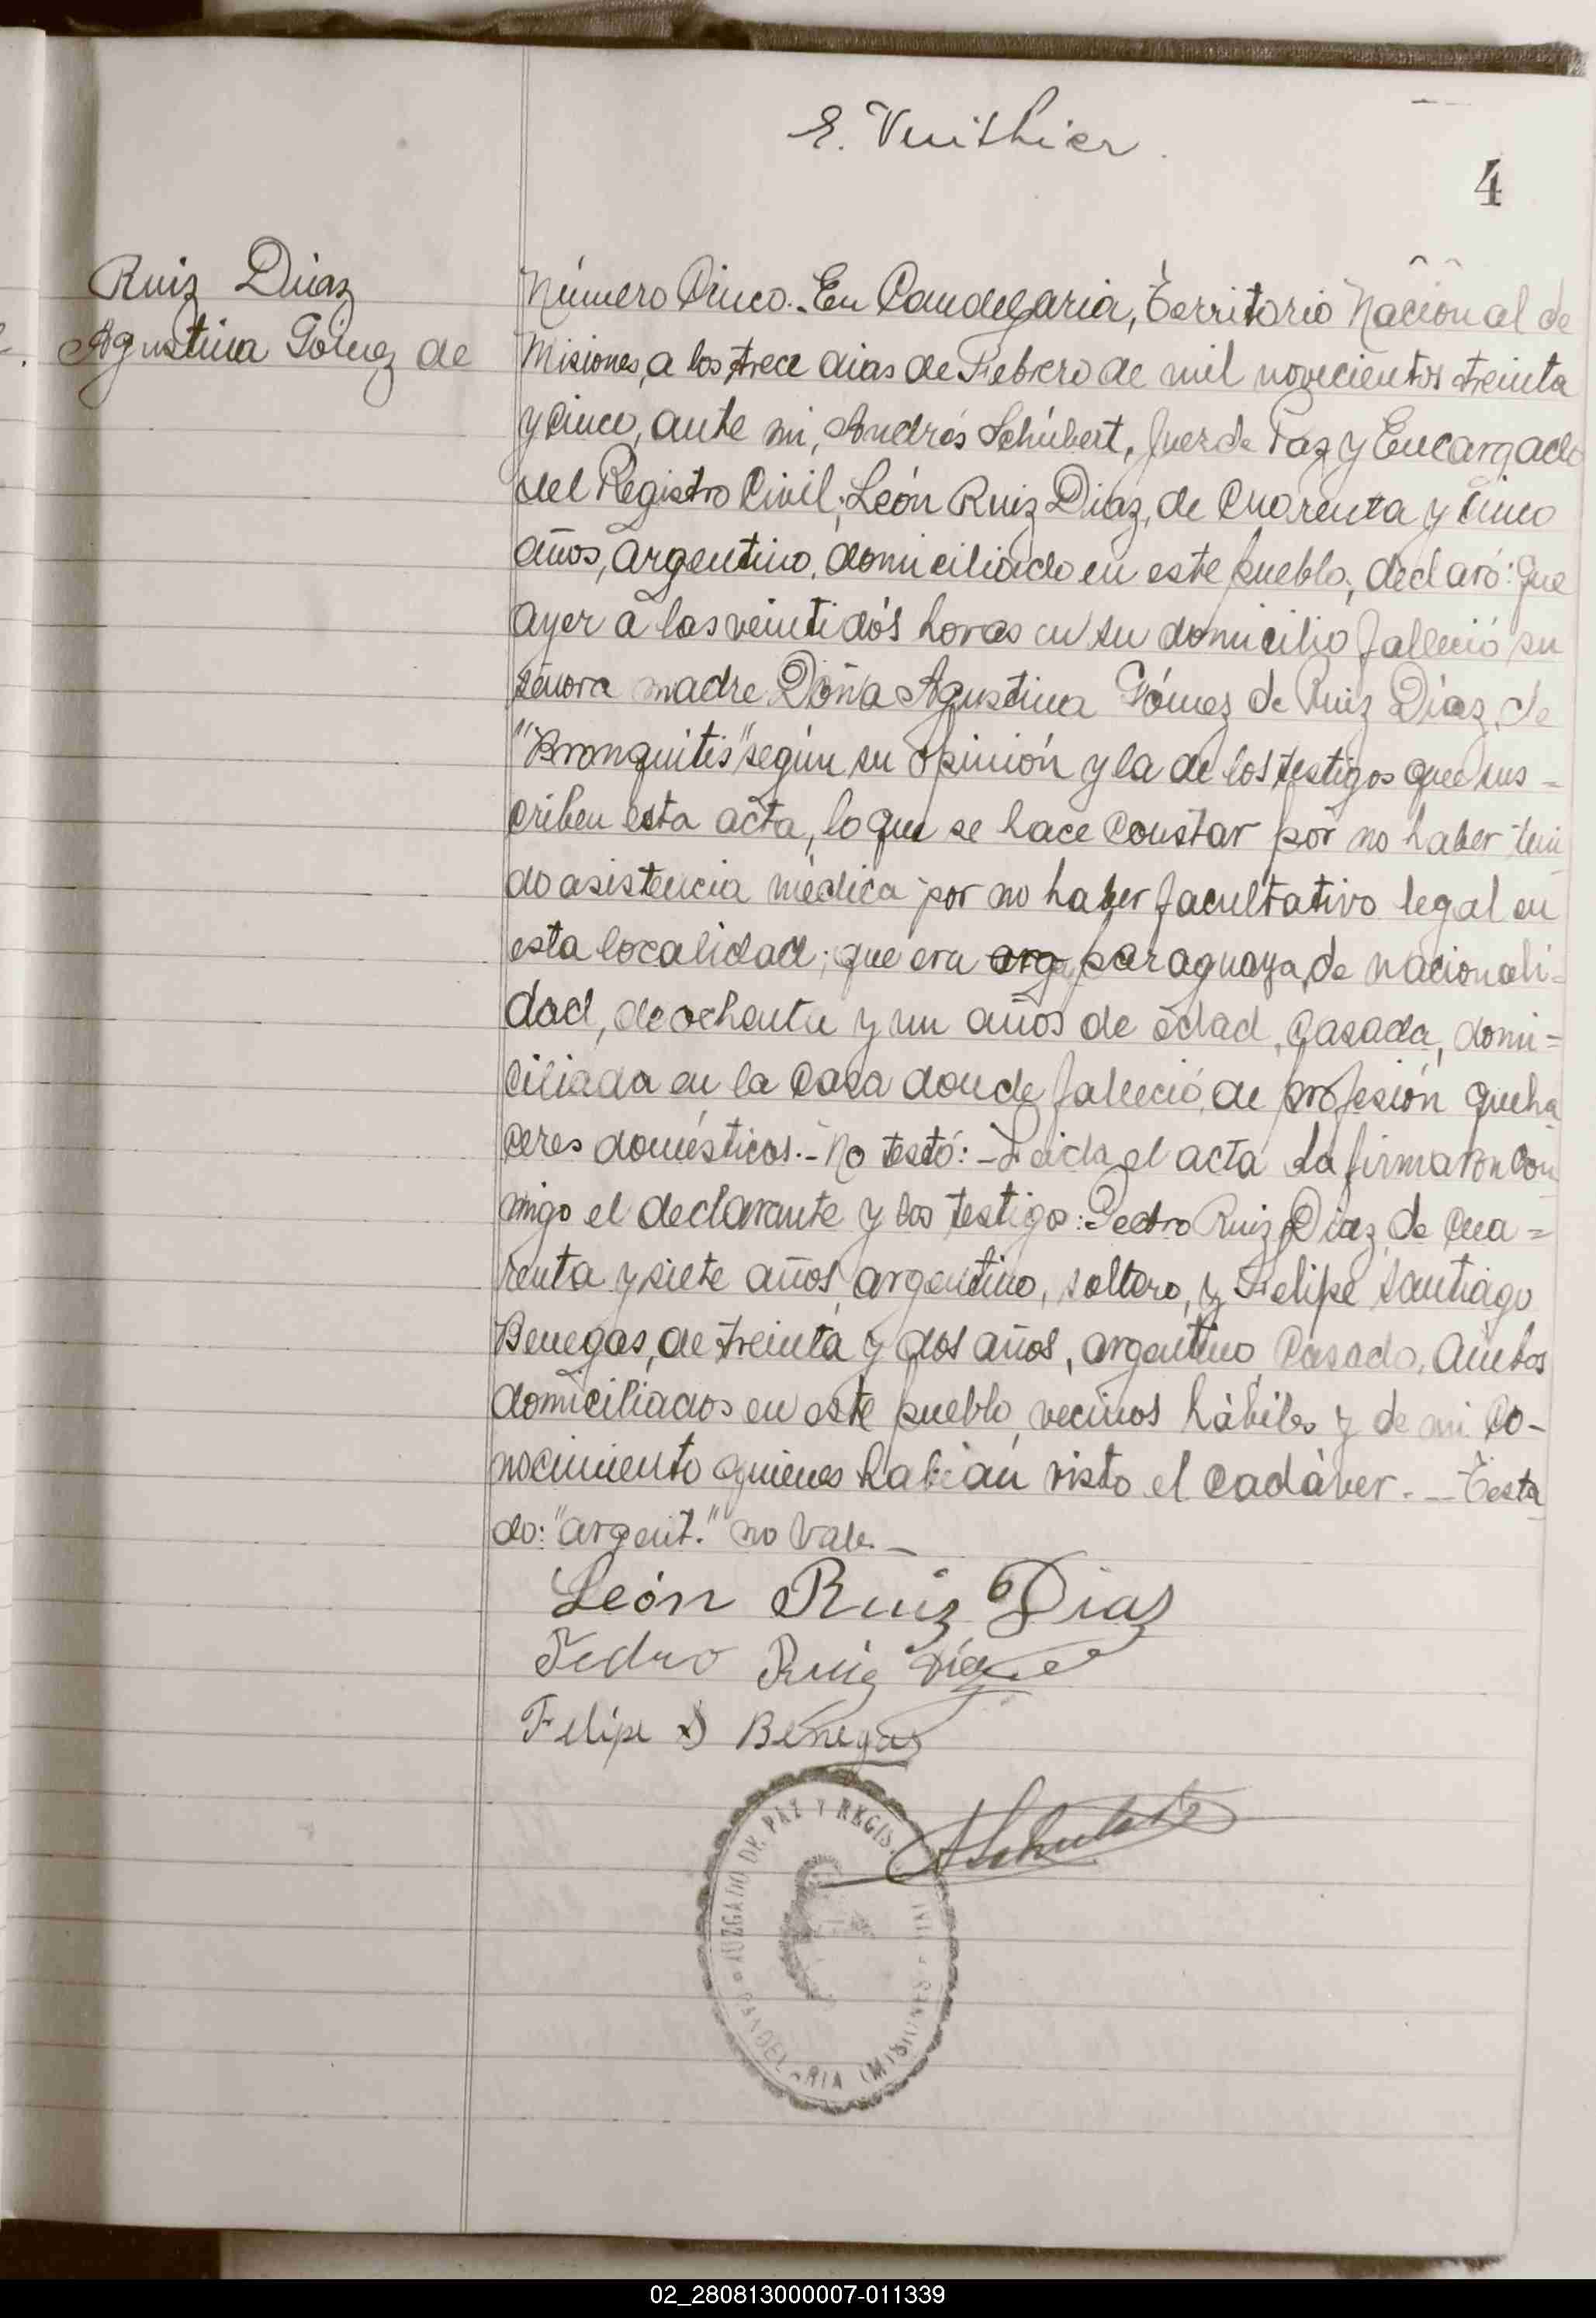 E. Vuithier
4
Ruiz Diaz
Agustina Gómez de
Número Cinco.- En Candelaria, Territorio Nacional de
Misiones, a los trece dias de Febrero de mil novecientos treinta
y cinco, ante mi, Andrés Schúbert, Juez de Paz y Encargado
del Registro Civil; León Ruiz Diaz, de cuarenta y cinco
años, argentino, domiciliado en este pueblo, declaró: que
ayer a las veintidós horas en su domicilio falleció su
señora madre Doña Agustina Gómez de Ruiz Díaz, de
"Bronquitis" según su opinión y la de los testigos que sus=
criben esta acta, lo que se hace constar por no haber teni
do asistencia médica por no haber facultativo legal en
esta localidad; que era arg paraguaya, de nacionali=
dad, de ochenta y un años de edad, casada, domi=
ciliada en la casa donde falleció, de profesión queha
ceres domésticos.- No testó:- Leida el acta la firmaron con
migo el declarante y los testigo: Pedro Ruiz Diaz, de cua=
renta y siete años, argentino, soltero, y Felipe Santiago
Benegas, de treinta y dos años, argentino, casado, ambos
domiciliados en este pueblo, vecinos hábiles y de mi co-
nocimiento quienes habian visto el cadáver.- Testa
do: "argent." no vale.-
León Ruiz Diaz
Pedro Ruiz Díaz
Felipe S Benegas
ASchubert
JUZGADO DE PAZ Y REGIS. CIVIL
CANDELARIA (MISIONES)
02_280813000007-011339